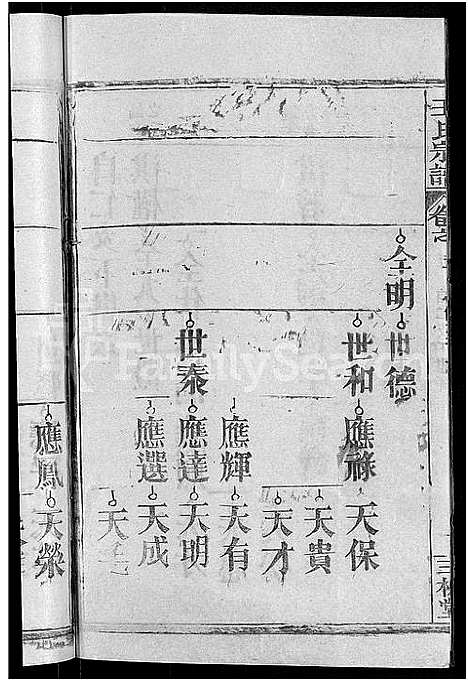 王氏宗譜
卷之
仝明
世德
世和
應祿
天保
天貴
天才
應輝
天有
世泰
應達
天明
應選
天成
天
應鳳
天榮
三槐堂
FamilySearch